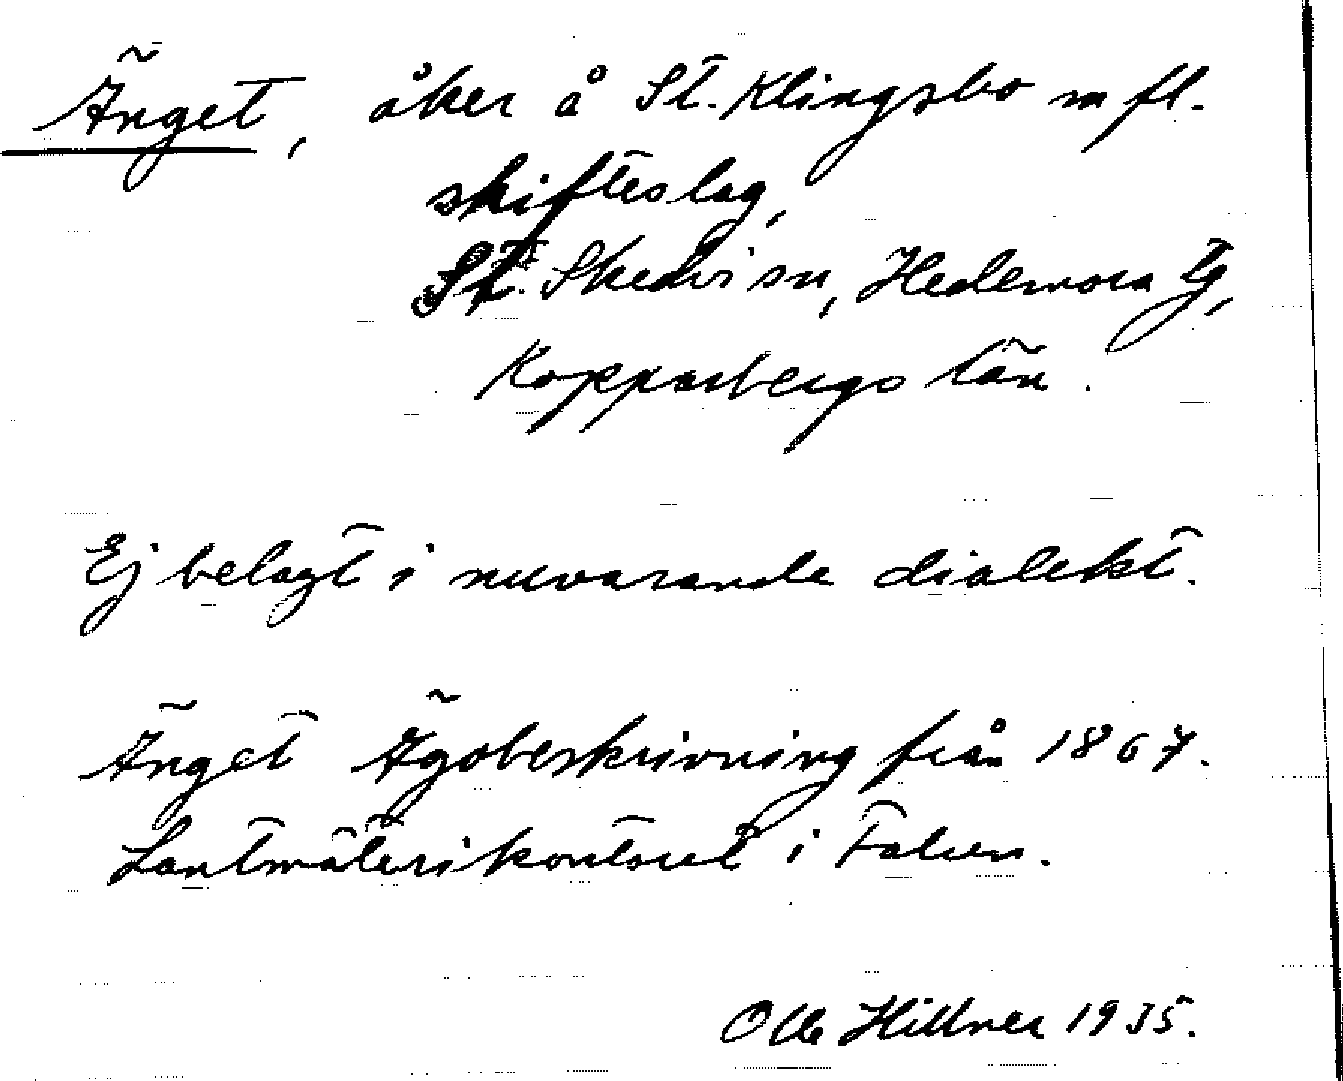 Änget, åker å St. Klingsbo m fl.
skifteslag,
St. Skedvi sn, Hedemora tg,
Kopparbergs län.
Ej belagt i nuvarande dialekt.
Änget Ägobeskrivning från 1867.
Lantmäterikontoret i Falun.
Olle Hillner 1935.